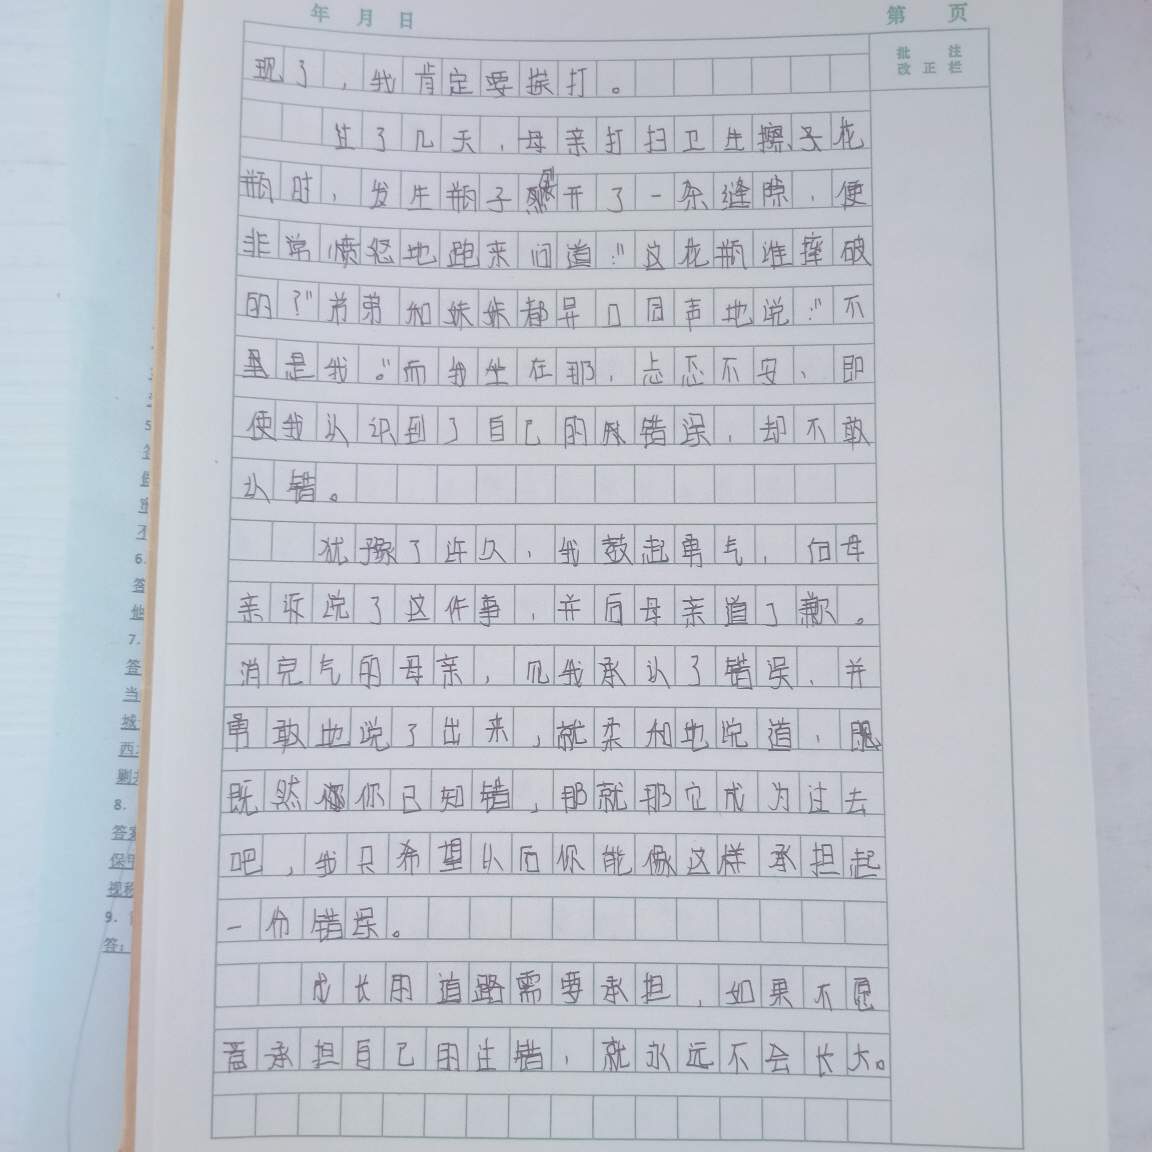 年 月 日
第 页
批 注
改 正 栏
现了，我肯定要挨打。
过了几天，母亲打扫卫生擦子花
瓶时，发生瓶子裂开了一条缝隙，便
非常愤怒地跑来问道："这花瓶谁摔破
的？"弟弟和妹妹都异口同声地说："不
是我。"而我坐在那，忐忑不安、即
使我认识到了自己的错误，却不敢
认错。
犹豫了许久，我鼓起勇气，向母
亲诉说了这件事，并后母亲道了歉。
消完气的母亲，见我承认了错误、并
勇敢地说了出来，就柔和地说道，
既然你已知错，那就那它成为过去
吧，我只希望以后你能像这样承担起
一份错误。
成长的道路需要承担，如果不愿
意承担自己的过错，就永远不会长大。
5
6.
答
他
7.
答
当
城
西
8.
答案
保
视
9.
答：